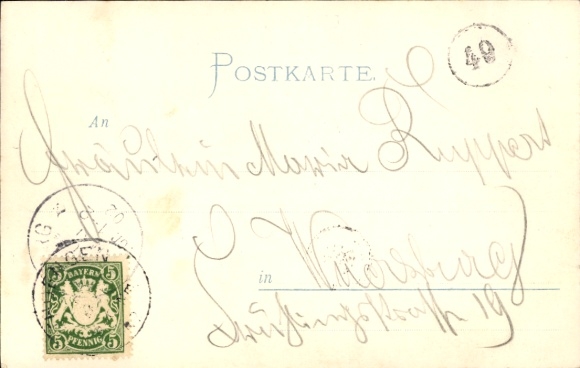 POSTKARTE.
49
An
Fräulein Maria Ruppert
in Würzburg
19
BAYERN
5 5
PFENNIG
5 5